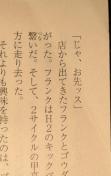 「じゃ、お先ッス」
店から出てきたフランクとゴウダ
がった。フランクはH2のキックペ
繋いだ。そして、2サイクルの甲高
方に走り去った。
それよりも興味を持ったのは、